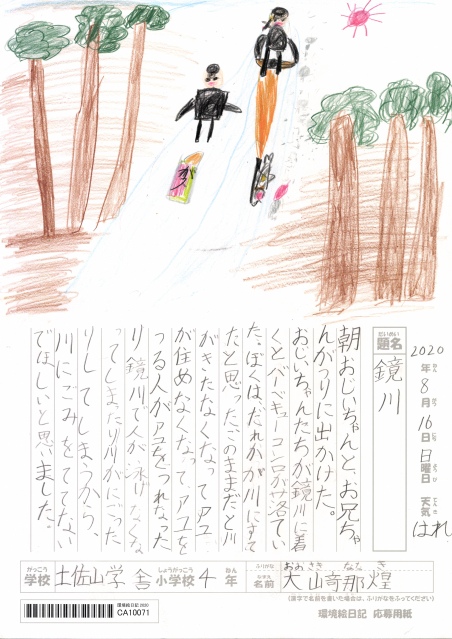 2020年8月16日日曜日 天気 はれ
だいめい
題名
鏡川
朝おじいちゃんと、お兄ちゃ
んがつりに出かけた。
おじいちゃんたちが鏡川に着
くとバーベキューコンロが落てい
た。ぼくは、だれかが川にすて
たと思った。このままだと川
がきたなくなって アユ
が住めなくなって、アユを
つる人がアユをつれなかった
り 鏡川で人が泳げなくな
ってしまったり川がにごった
りしてしまうから、
川にごみをすててない
でほしいと思いました。
がっこう
学校
土佐山学舎
しょうがっこう
小学校
4
ねん
年
ふりがな
おおさき なたき
なまえ
名前
大﨑那煌
(漢字で名前を書いた場合は、ふりがなをふってください)
環境絵日記2020
CA10071
環境絵日記 応募用紙